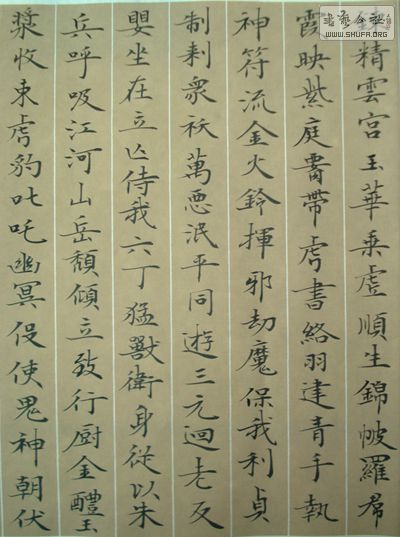 精雲宮玉華乘虛順生錦帔羅帬
霞映紫庭䙅帶虎書絡羽建青手執
神符流金火鈴揮邪劫魔保我利貞
制勑衆祅萬悪泯平同遊三元迴老反
嬰坐在立亡侍我六丁猛獸衛身從以朱
兵呼吸江河山岳頹傾立致行厨金醴玉
漿收束虎豹叱吒幽冥役使鬼神朝伏
WWW.SHUFA.ORG